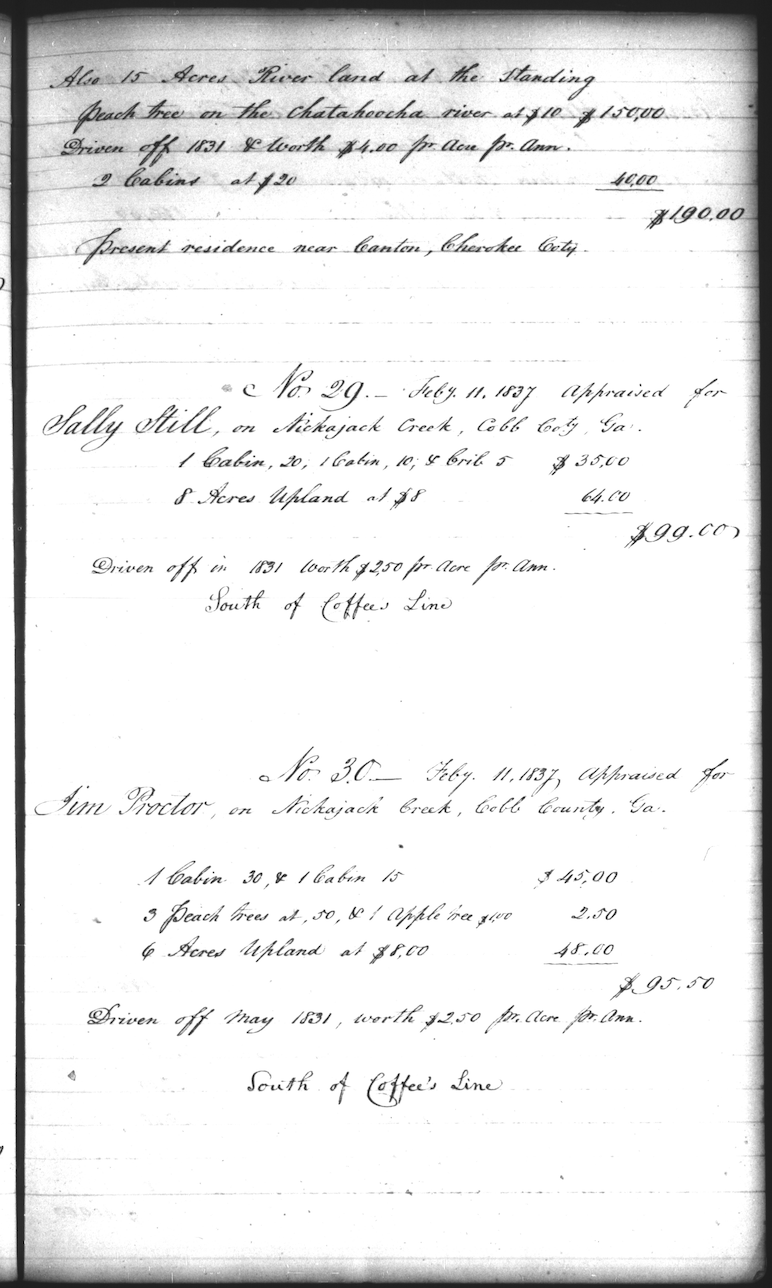 Also 15 Acres River land at the Standing
Peach tree on the Chatahoocha river at $10 $150,00
Driven off 1831 & Worth $4.00 pr. Acre pr. Ann.
2 Cabins at $20 40,00
$190.00
Present residence near Canton, Cherokee Coty.
No. 29.– Feby. 11, 1837 Appraised for
Sally Still, on Nickajack Creek, Cobb Coty, Ga.
1 Cabin, 20, 1 Cabin, 10, & Crib 5 $35,00
8 Acres Upland at $8 64.00
$99.00
Driven off in 1831 worth $2,50 pr. Acre pr. Ann.
South of Coffees Line
No. 30– Feby. 11, 1837, Appraised for
Jim Proctor, on Nickajack Creek, Cobb County, Ga.
1 Cabin 30, & 1 Cabin 15 $45,00
3 Peach trees at ,50, & 1 Apple tree $1,00 2.50
6 Acres Upland at $8,00 48.00
$95.50
Driven off May 1831, worth $2.50 pr. Acre pr. Ann.
South of Coffee's Line